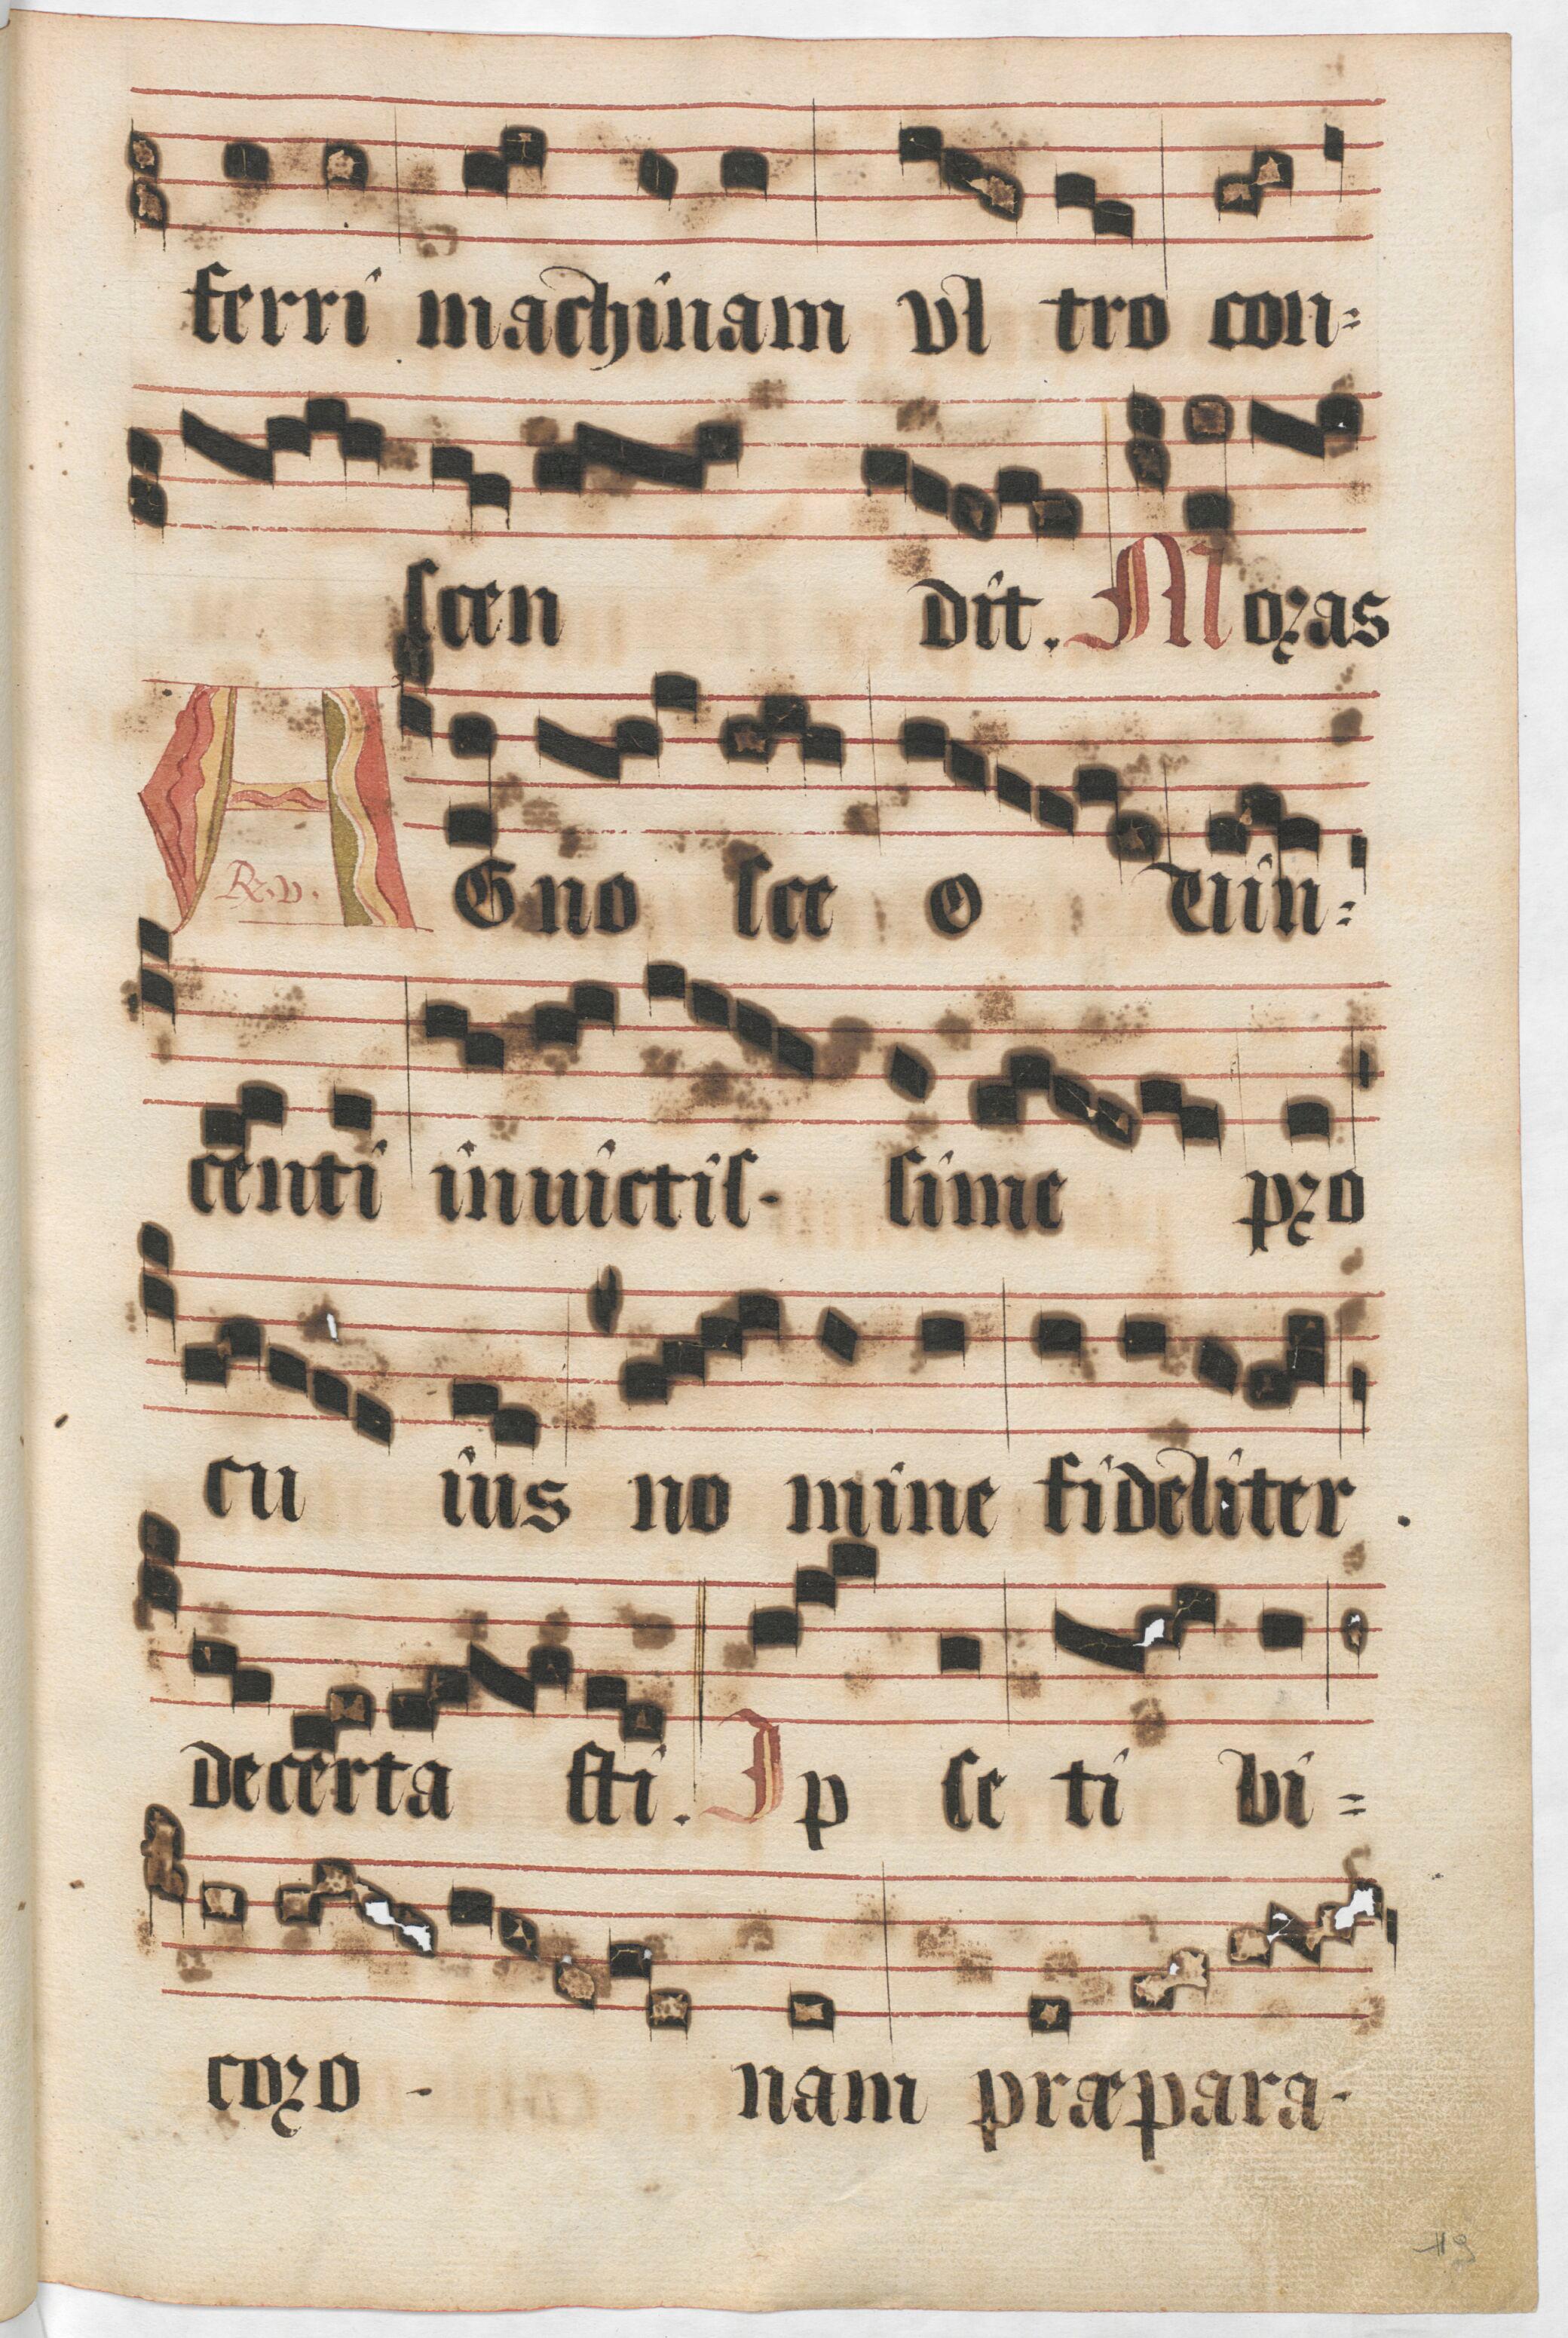 ferri machinam vl tro con=
scen dit. Moras
R. v.
AGno sce o Uin=
centi inuictis- sime pro
cu ius no mine fideliter.
decerta sti. Ip se ti bi=
coro - nam præpara-
119